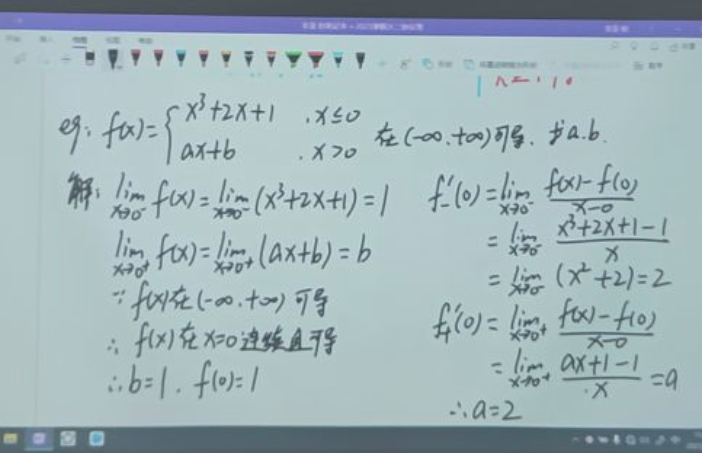 eg: f(x)={ x³+2x+1 , x≤0
ax+b , x>0 在(-∞,+∞)可导, 求a.b.
解: lim x→0⁻ f(x)= lim x→0⁻ (x³+2x+1)=1
lim x→0⁺ f(x)= lim x→0⁺ (ax+b)=b
∵ f(x)在(-∞,+∞)可导
∴ f(x)在x=0连续且可导
∴ b=1, f(0)=1
f'₋(0)= lim x→0⁻ (f(x)-f(0))/(x-0)
= lim x→0⁻ (x³+2x+1-1)/x
= lim x→0⁻ (x²+2)=2
f'₊(0)= lim x→0⁺ (f(x)-f(0))/(x-0)
= lim x→0⁺ (ax+1-1)/x =a
∴ a=2